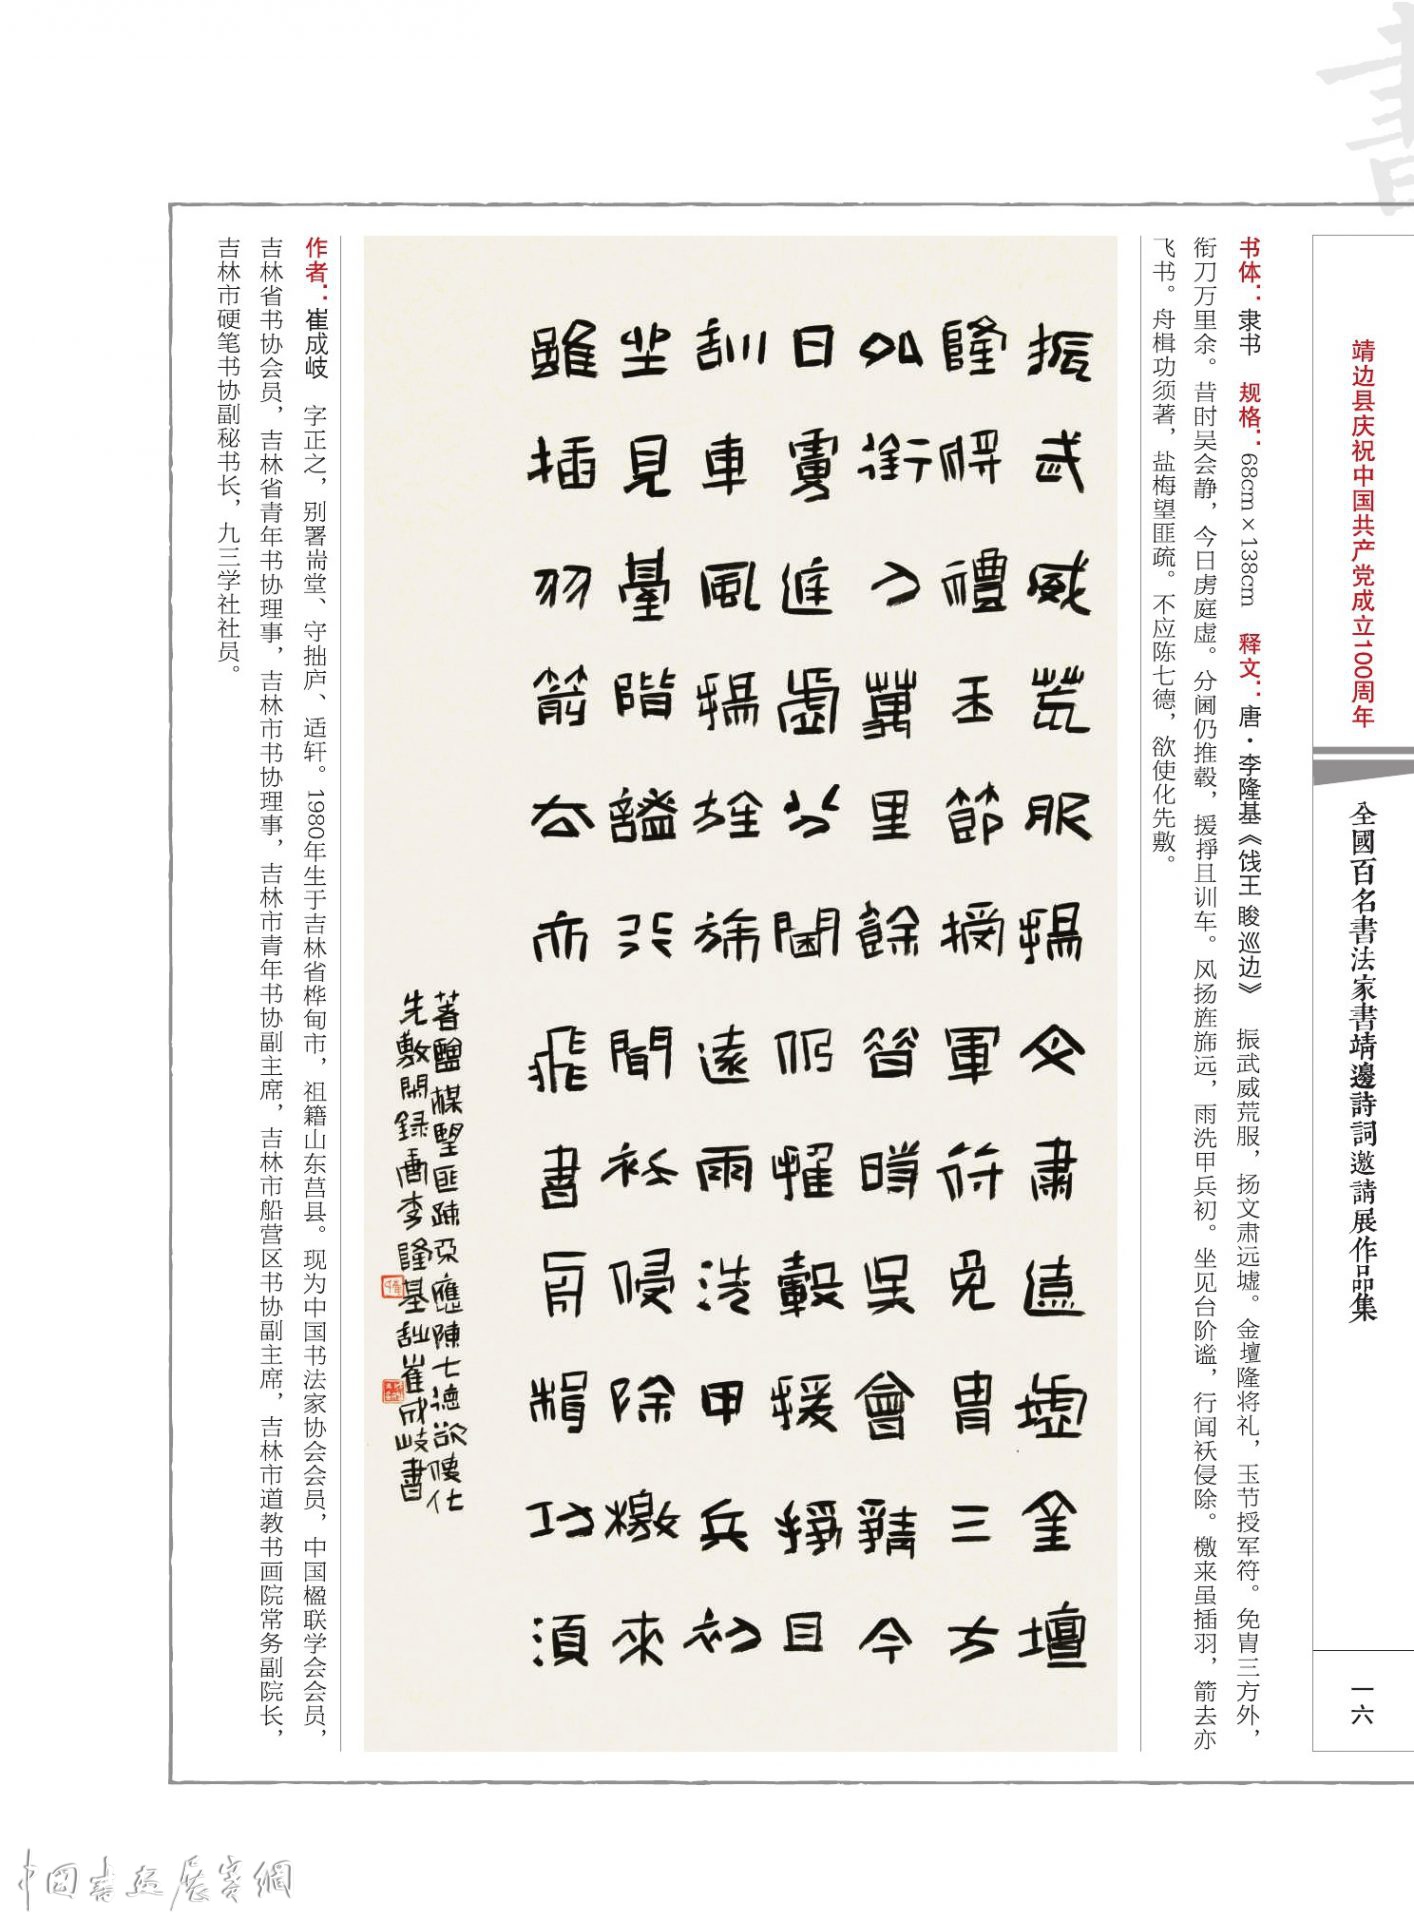 書
靖边县庆祝中国共产党成立100周年
全國百名書法家書靖邊詩詞邀請展作品集
一六
书体：隶书 规格：68cm×138cm 释文：唐·李隆基《饯王 晙巡边》 振武威荒服，扬文肃远墟。金壇隆将礼，玉节授军符。免胄三方外，
衔刀万里余。昔时吴会静，今日虏庭虚。分阃仍推毂，援掙且训车。风扬旌旆远，雨洗甲兵初。坐见台阶谧，行闻袄侵除。檄来虽插羽，箭去亦
飞书。舟楫功须著，盐梅望匪疏。不应陈七德，欲使化先敷。
振武威荒服揚文肅遠墟金壇
隆将禮玉節授軍符免冑三方
外銜刀萬里餘昔時吳會靜今
日虜庭虛分閫仍推轂援掙且
訓車風揚旌旆遠雨洗甲兵初
坐見臺階謐行聞袄侵除檄來
雖插羽箭去亦飛書舟楫功須
著鹽楳望匪疎不應陳七德欲使化
先敷閑録唐李隆基詩崔成岐書
作者：崔成岐 字正之，别署耑堂、守拙庐、适轩。1980年生于吉林省桦甸市，祖籍山东莒县。现为中国书法家协会会员，中国楹联学会会员，
吉林省书协会员，吉林省青年书协理事，吉林市书协理事，吉林市青年书协副主席，吉林市船营区书协副主席，吉林市道教书画院常务副院长，
吉林市硬笔书协副秘书长，九三学社社员。
中國書畫展賽網